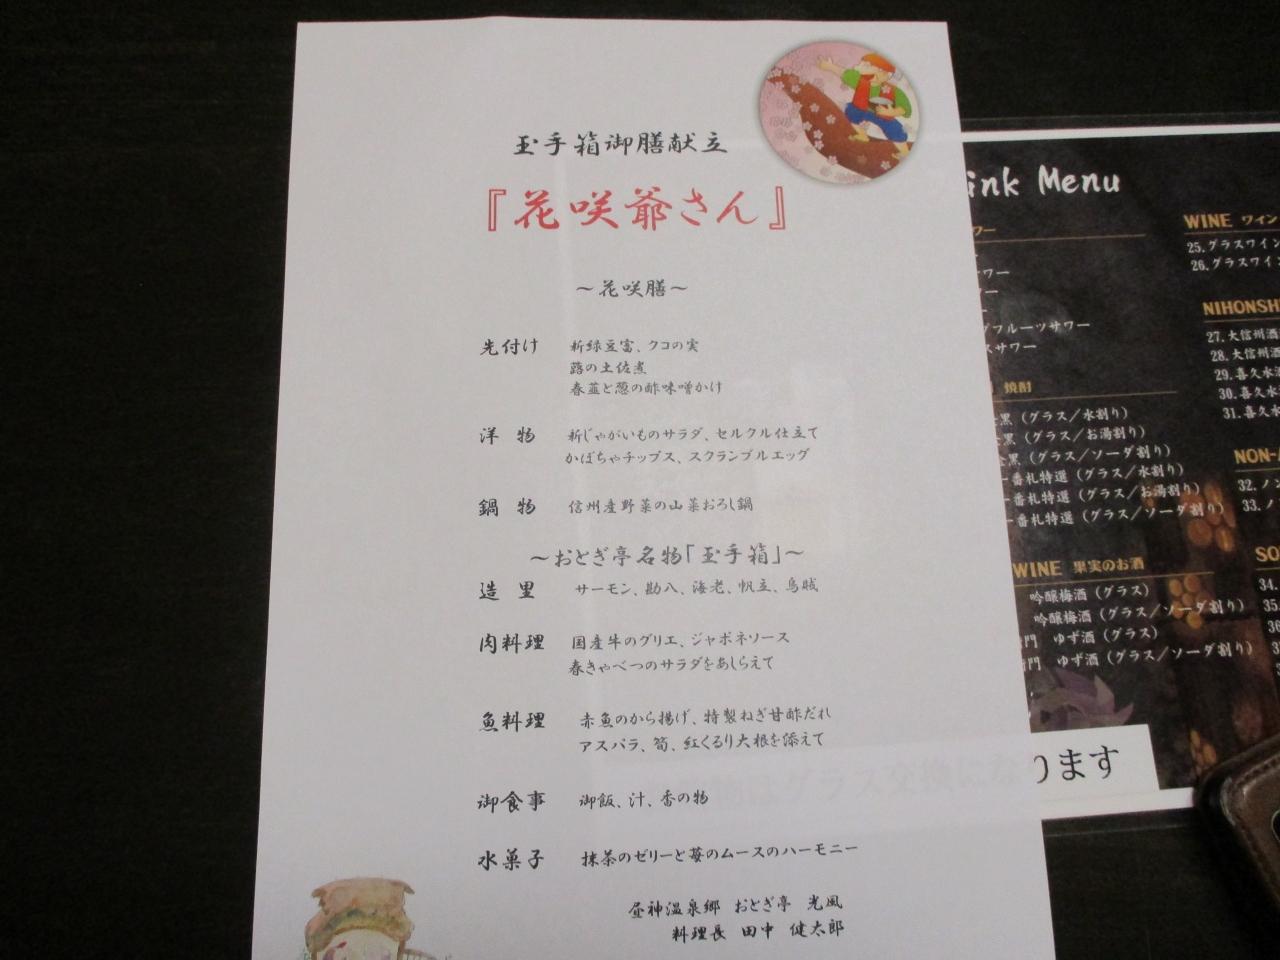 玉手箱御膳献立
『花咲爺さん』
～花咲膳～
先付け 新緑豆富、クコの実
蕗の土佐煮
春韮と葱の酢味噌かけ
洋 物 新じゃがいものサラダ、セルクル仕立て
かぼちゃチップス、スクランブルエッグ
鍋 物 信州産野菜の山菜おろし鍋
～おとぎ亭名物「玉手箱」～
造 里 サーモン、勘八、海老、帆立、烏賊
肉料理 国産牛のグリエ、ジャポネソース
春きゃべつのサラダをあしらえて
魚料理 赤魚のから揚げ、特製ねぎ甘酢だれ
アスパラ、筍、紅くるり大根を添えて
御食事 御飯、汁、香の物
水菓子 抹茶のゼリーと苺のムースのハーモニー
昼神温泉郷 おとぎ亭 光風
料理長 田中 健太郎
ink Menu
ワー
ワー
ー
プフルーツサワー
スサワー
焼酎
黒（グラス／水割り）
黒（グラス／お湯割り）
黒（グラス／ソーダ割り）
一番札特選（グラス／水割り）
一番札特選（グラス／お湯割り）
一番札特選（グラス／ソーダ割り）
WINE 果実のお酒
吟醸梅酒（グラス）
吟醸梅酒（グラス／ソーダ割り）
門 ゆず酒（グラス）
門 ゆず酒（グラス／ソーダ割り）
WINE ワイン
25.グラスワイン
26.グラスワイン
NIHONSH
27.大信州酒
28.大信州酒
29.喜久水酒
30.喜久水
31.喜久水
NON-A
32.ノン
33.ノ
SO
34.
35.
36
物はグラス交換になります